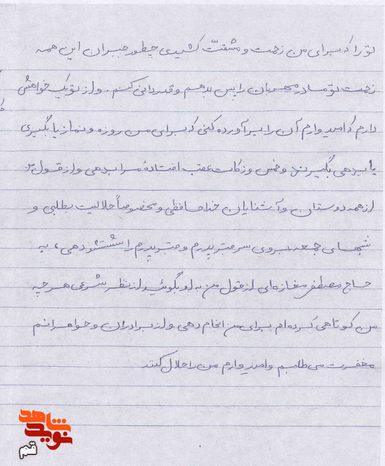 تو را که برای من زحمت و مشقت کشیدی چطور جبران این همه
زحمت تو مادر مهربان را پس بدهم و قدردانی کنم. و از تو یک خواهشی
دارم که امیدوارم آن را برآورده کنی که برای من روزه و نماز یا بگیری
یا بدهی بگیرند و خمس و زکات عقب افتاده مرا بدهی و از قول من
از همه دوستان و آشنایان خداحافظی و مخصوصاً حلالیت بطلبی و
شبهای جمعه بروی سر قبر پدرم و قبر پدرم را شستشو دهی، به
حاج مصطفی مغازه‌ای از قول من به او بگوئید از نظر شرعی هر چه
من کوتاهی کرده‌ام برای من انجام دهی و از برادران و خواهرانم
مغفرت می‌طلبم و امیدوارم من را حلال کنند
نوید شاهد
قم